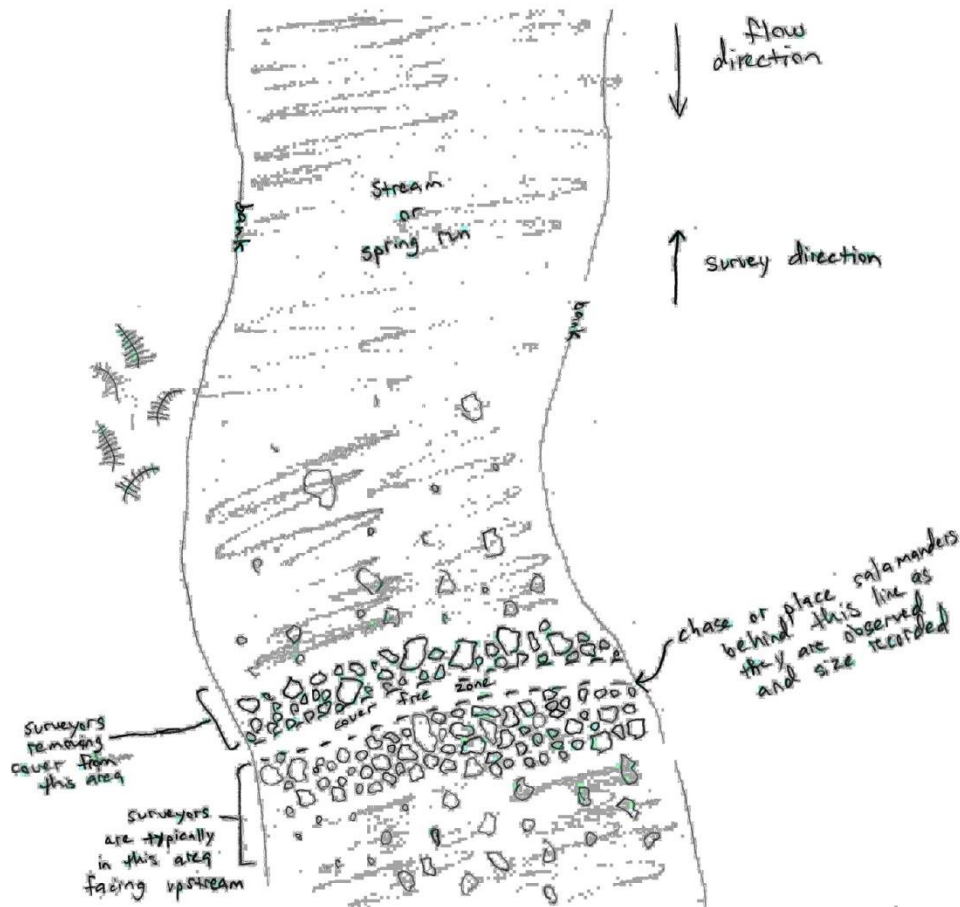 flow
direction
stream
or
spring run
bank
survey direction
bank
chase or place salamanders
behind this line as
they are observed
and size recorded
cover free zone
surveyors
removing
cover from
this area
surveyors
are typically
in this area
facing upstream